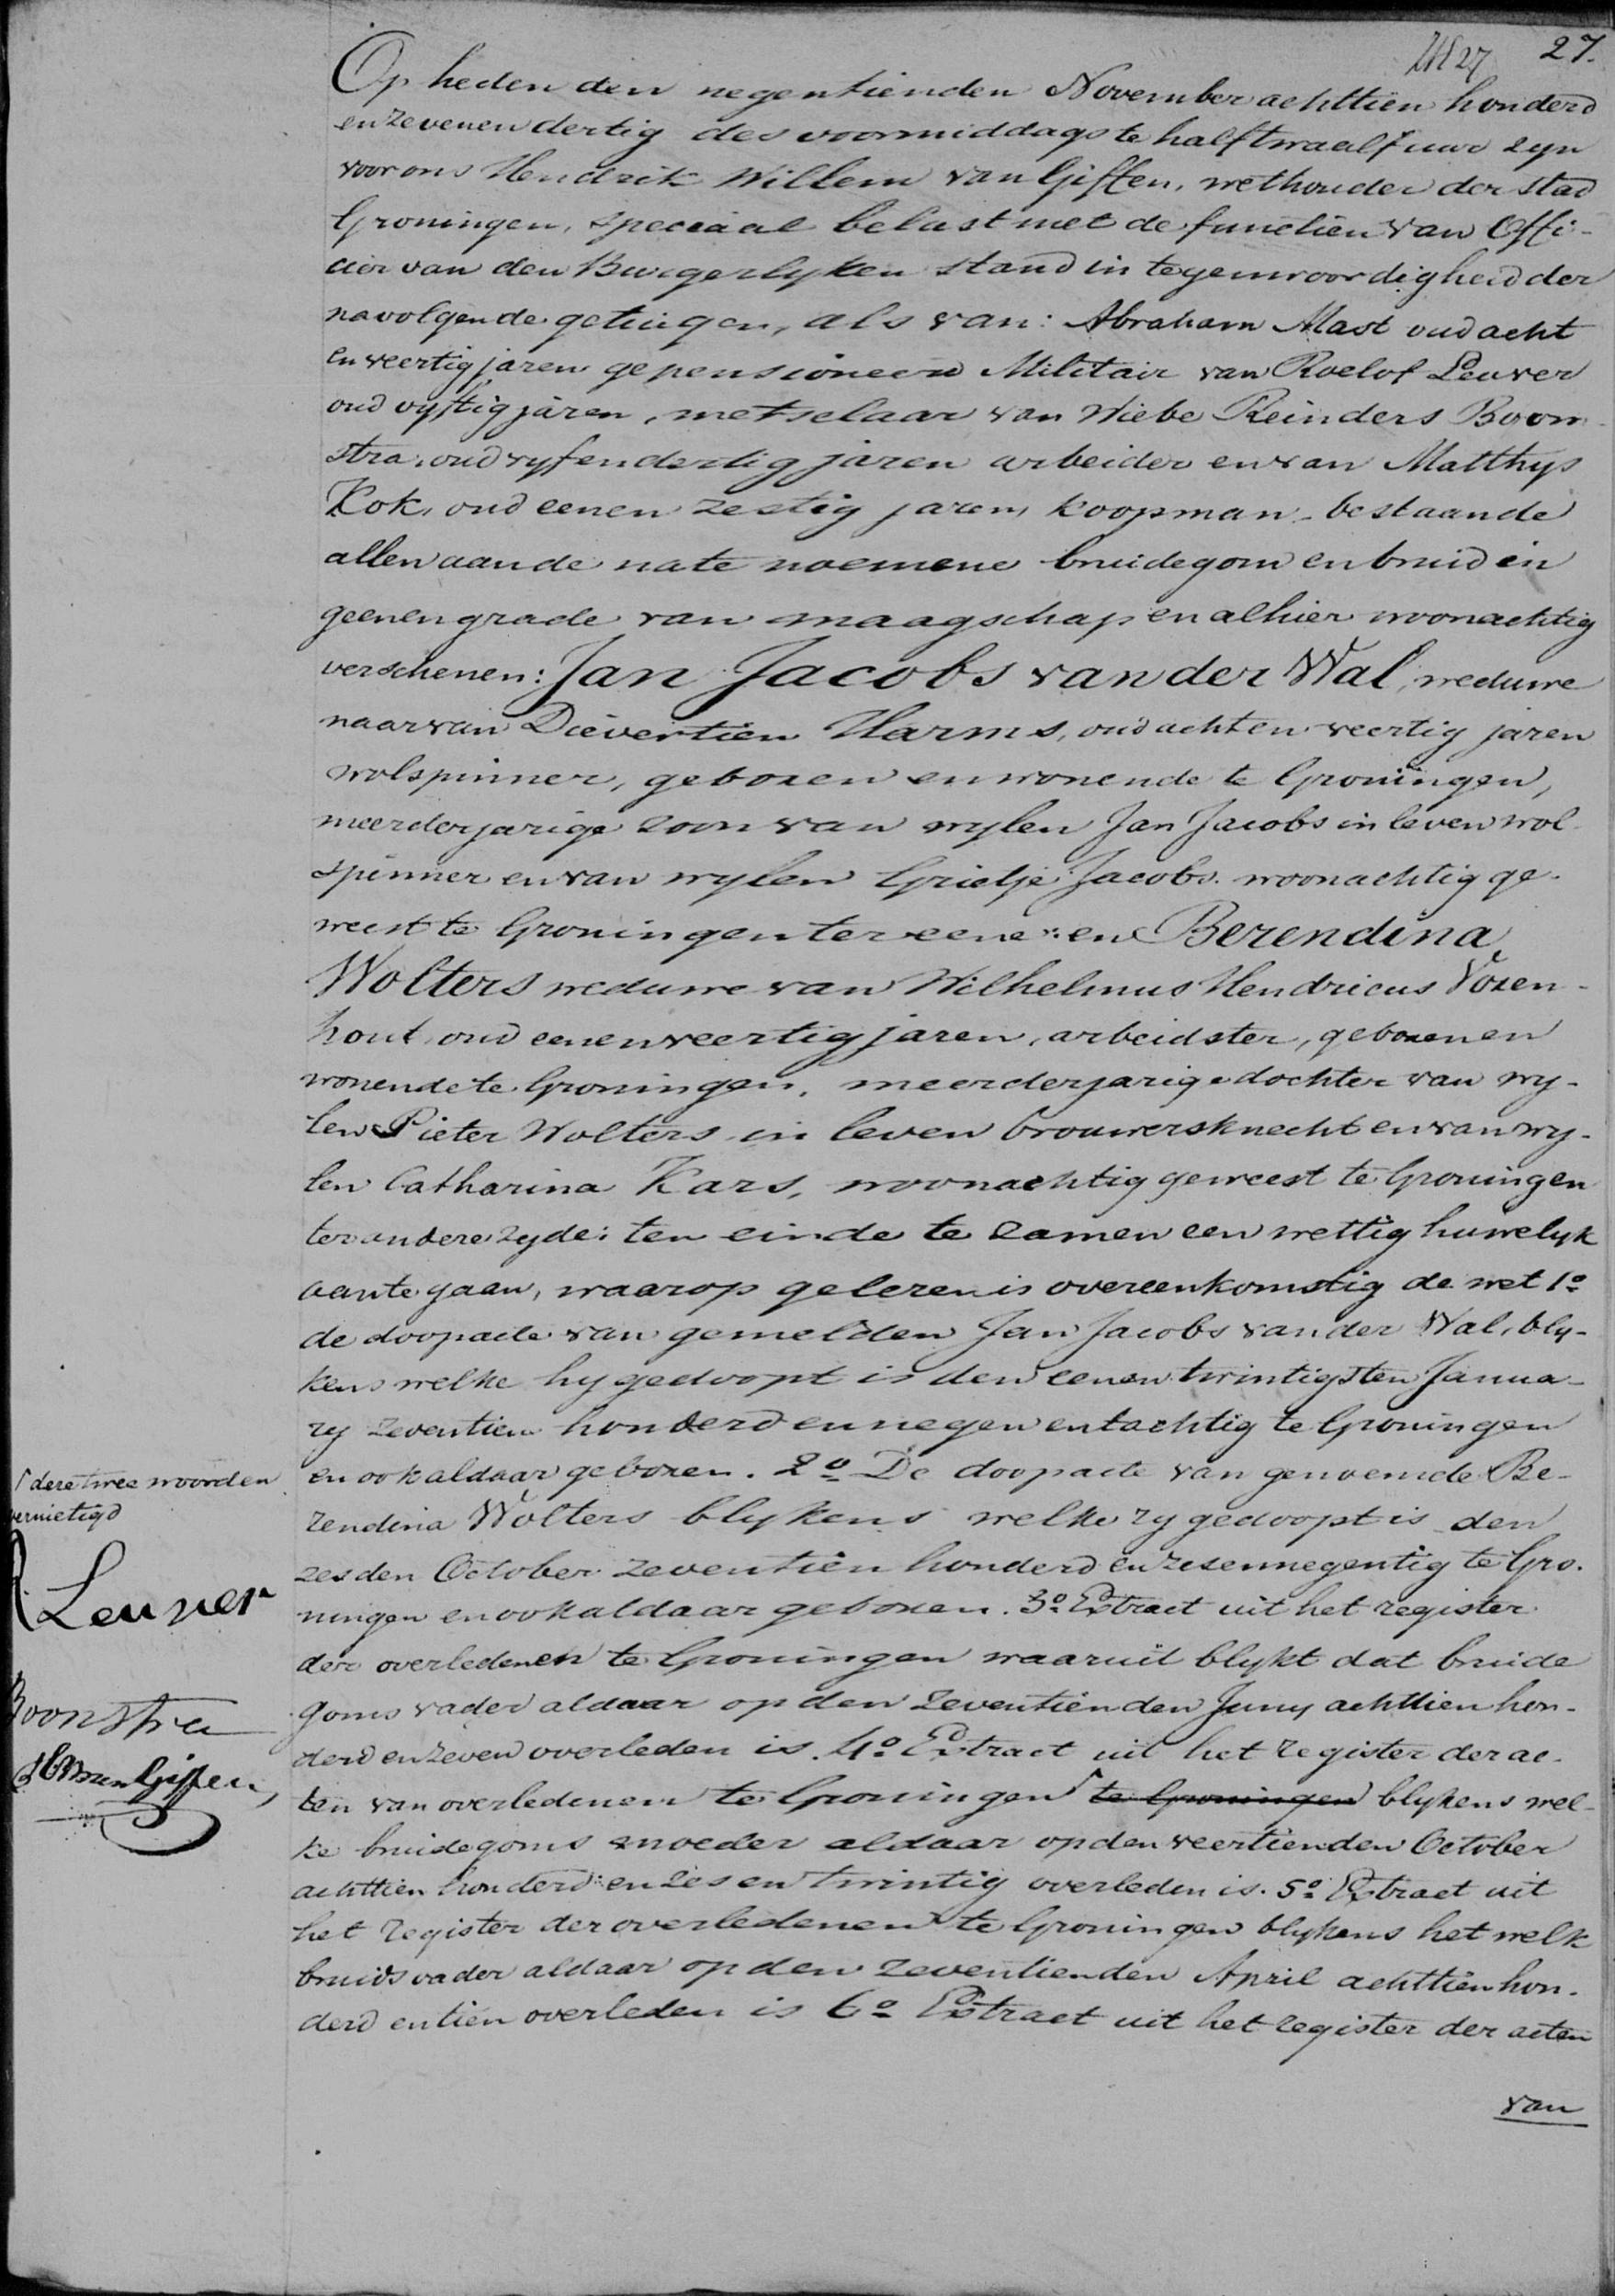 27.
Op heden den negentienden November achttien honderd
en zevenendertig des voormiddags te half twaalf uur zyn
voor ons Hendrik Willem van Giffen, wethouder der stad
Groningen, speciaal belast met de functien van Offi-
cier van den Burgerlyken stand in tegenwoordigheid der
navolgende getuigen, als van: Abraham Mast oud acht
en veertig jaren gepensioneerd Militair van Roelof Leuver
oud vyftig jaren, metselaar van Wiebe Reinders Boon-
stra, oud vyfendertig jaren arbeider en van Matthys
Kok, oud eenen zestig jaren, koopman - bestaande
allen aan de nate noemene bruidegom en bruid in
geenen grade van maagschap en alhier woonachtig
verschenen: Jan Jacobs van der Wal, weduwe
naar van Dievertien Harms, oud acht en veertig jaren
wolspinner, geboren en wonende te Groningen,
meerderjarige zoon van wylen Jan Jacobs in leven wol-
spinner en van wylen Grietje Jacobs. woonachtig ge-
weest te Groningen ter eene: en Berendina
Wolters weduwe van Wilhelmus Hendricus Voxen-
hout, oud eenenveertig jaren, arbeidster, geboren en
wonende te Groningen, meerderjarige dochter van wy-
len Pieter Wolters in leven brouwersknecht en van wy-
len Catharina Kars, woonachtig geweest te Groningen
ter andere zyde: ten einde te zamen een wettig huwelyk
aan te gaan, waarop gelezen is overeenkomstig de wet 1o
de doopacte van gemelden Jan Jacobs van der Wal, bly-
kens welke hy gedoopt is den eenen twintigsten Janua-
ry zeventien honderd en negen en tachtig te Groningen
en ook aldaar geboren. 2o De doopacte van genoemde Be-
rendina Wolters blykens welke zy gedoopt is den
zesden October zeventien honderd en zesennegentig te Gro-
ningen en ook aldaar geboren. 3o Extract uit het register
der overledenen te Groningen waaruit blykt dat bruide
goms vader aldaar op den zeventienden Juny achttien hon-
derd en zeven overleden is. 4o Extract uit het register der ac-
ten van overledenen te Groningen te Groningen blykens wel-
ke bruidegoms moeder aldaar op den veertienden October
achttien honderd en zes en twintig overleden is. 5o Extract uit
het register der overledenen te Groningen blykens het welk
bruids vader aldaar op den zeventienden April achttien hon-
derd en tien overleden is 6o Extract uit het register der acten
van
deze twee woorden
vernietigd
R Leuver
Boonstra
HW van Giffen